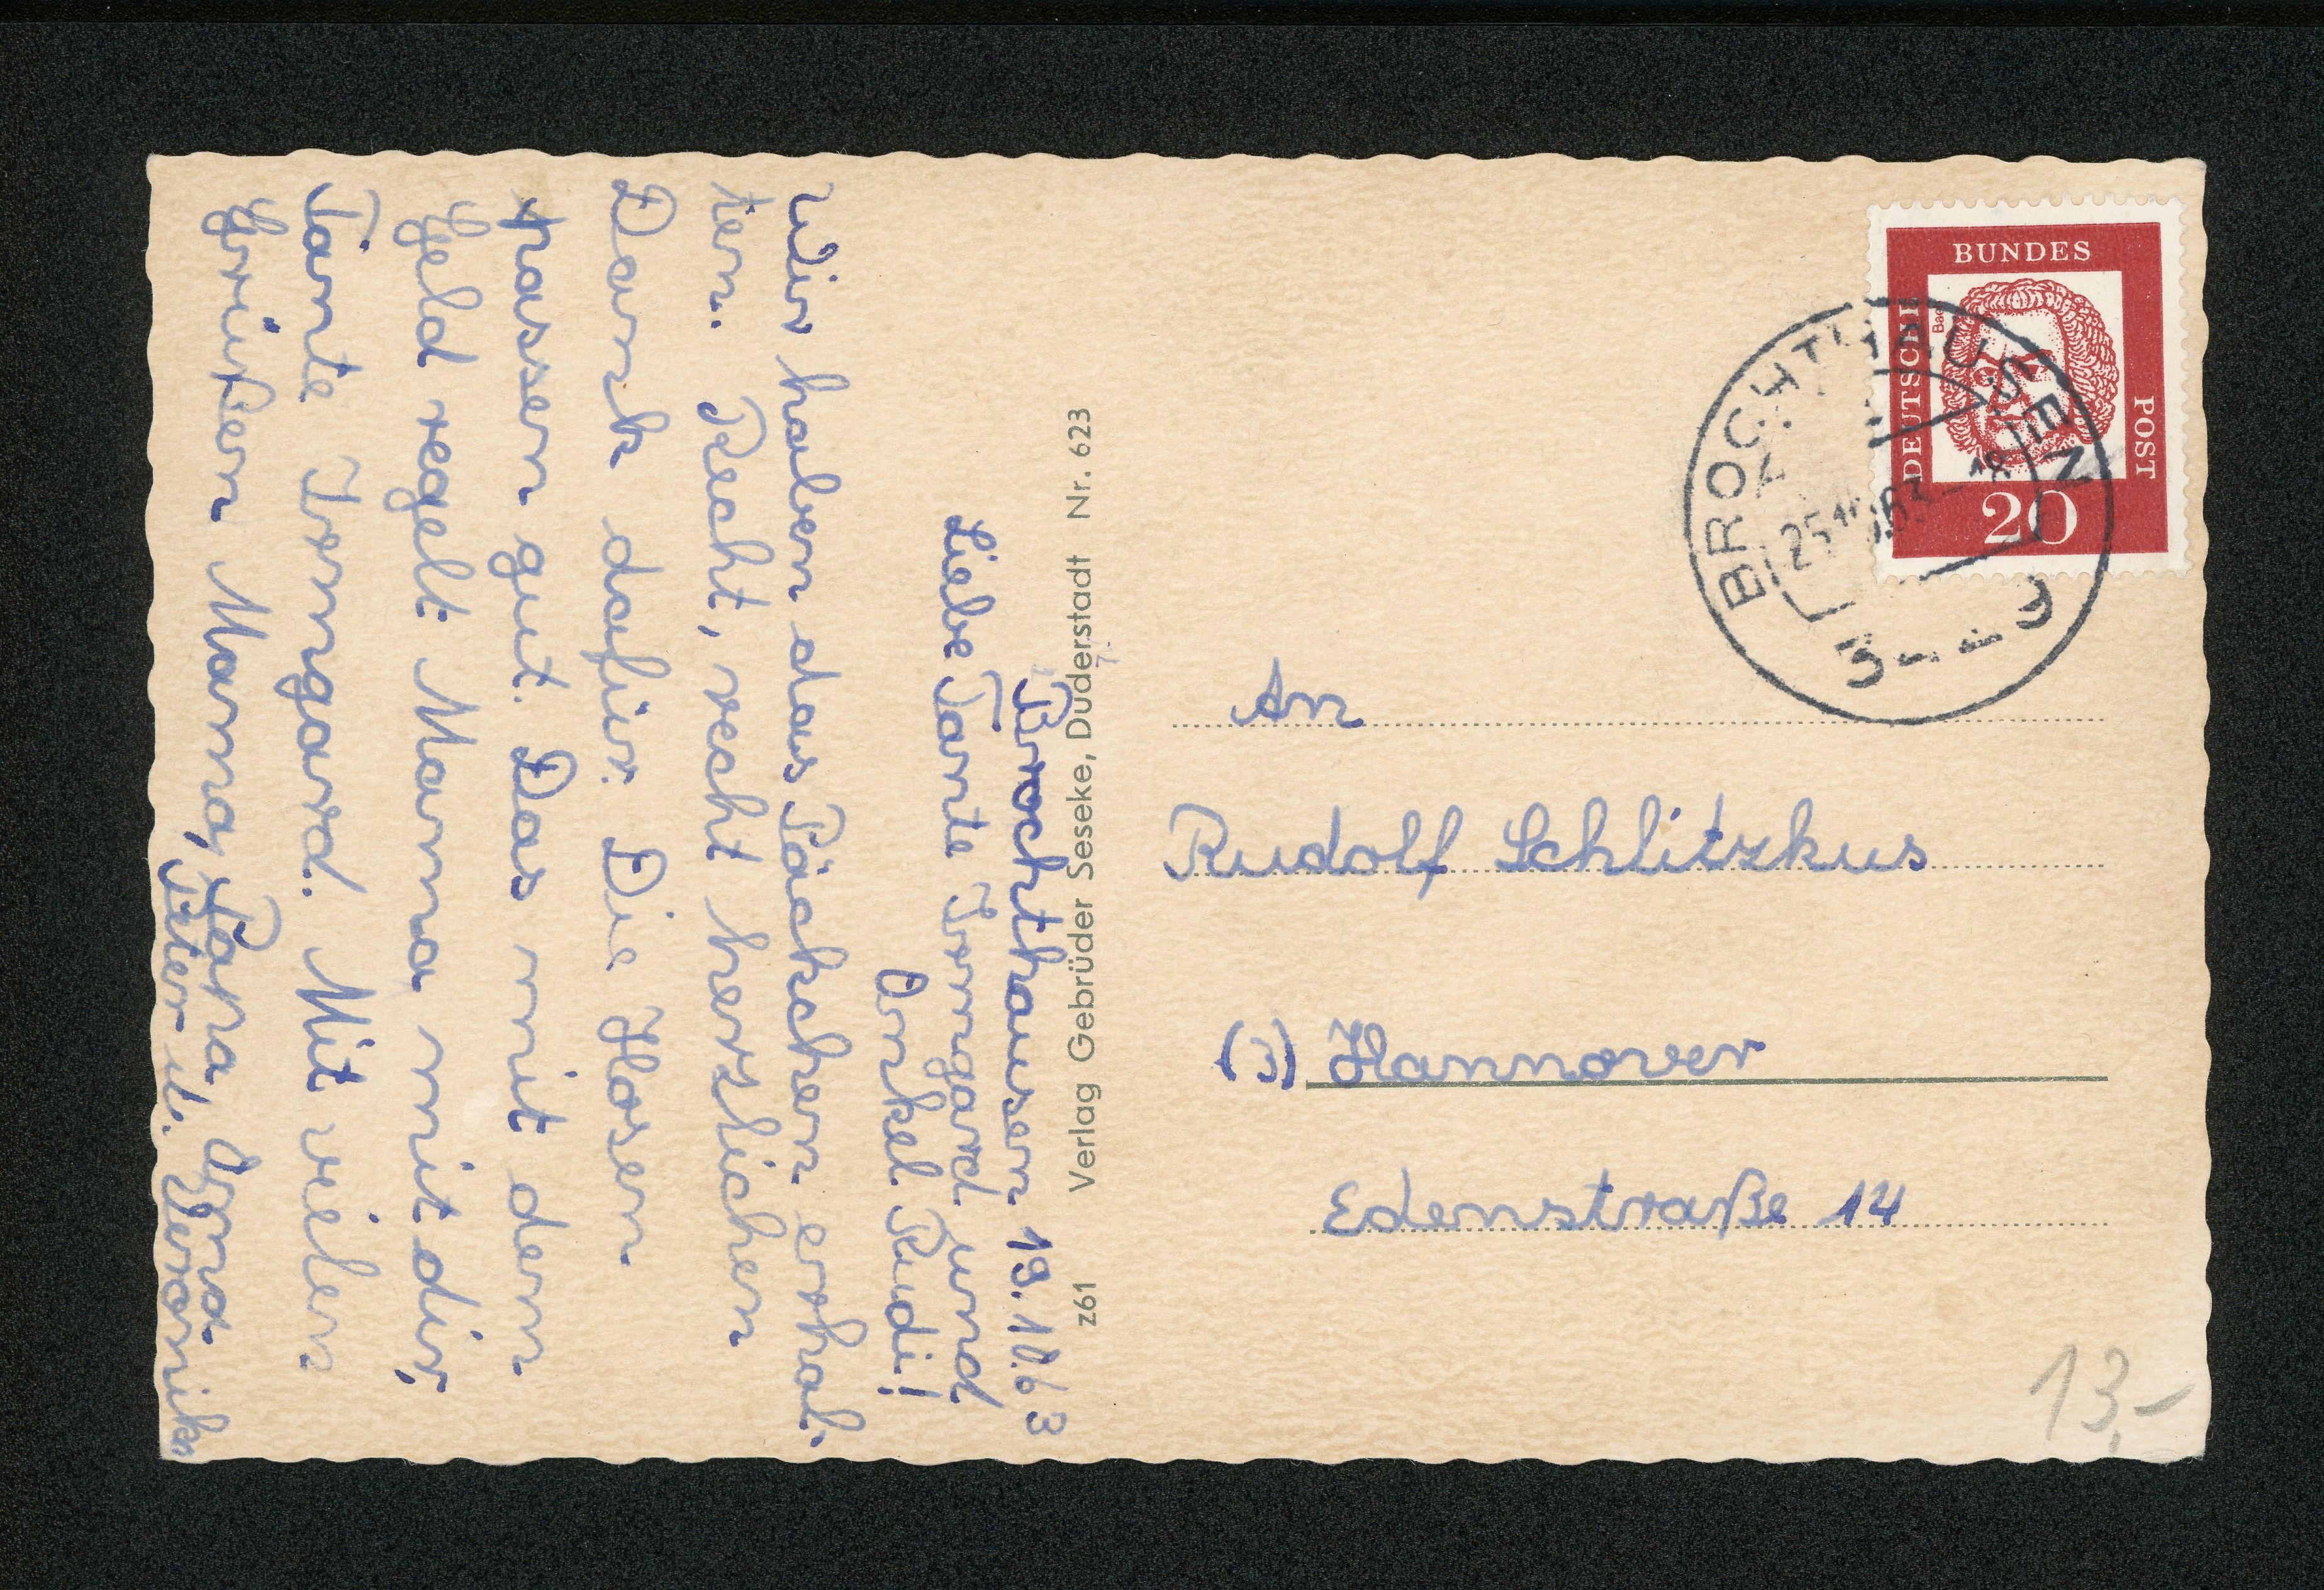 Brochthausen 19.10.63
Liebe Tante Irmgard und
Onkel Rudi!
Wir haben das Päckchen erhal-
ten. Recht, recht herzlichen
Dank dafür. Die Hosen
passen gut. Das mit dem
Geld regelt Mama mit dir,
Tante Irmgard. Mit vielen
Grüßen Mama, Papa Oma
Peter u. Veronika
z61 Verlag Gebrüder Seseke, Duderstadt Nr. 623
DEUTSCHE
BUNDES
POST
20
BROCHTHAUSEN
An
Rudolf Schlitzkus
(3) Hannover
Edenstraße 14
13,-